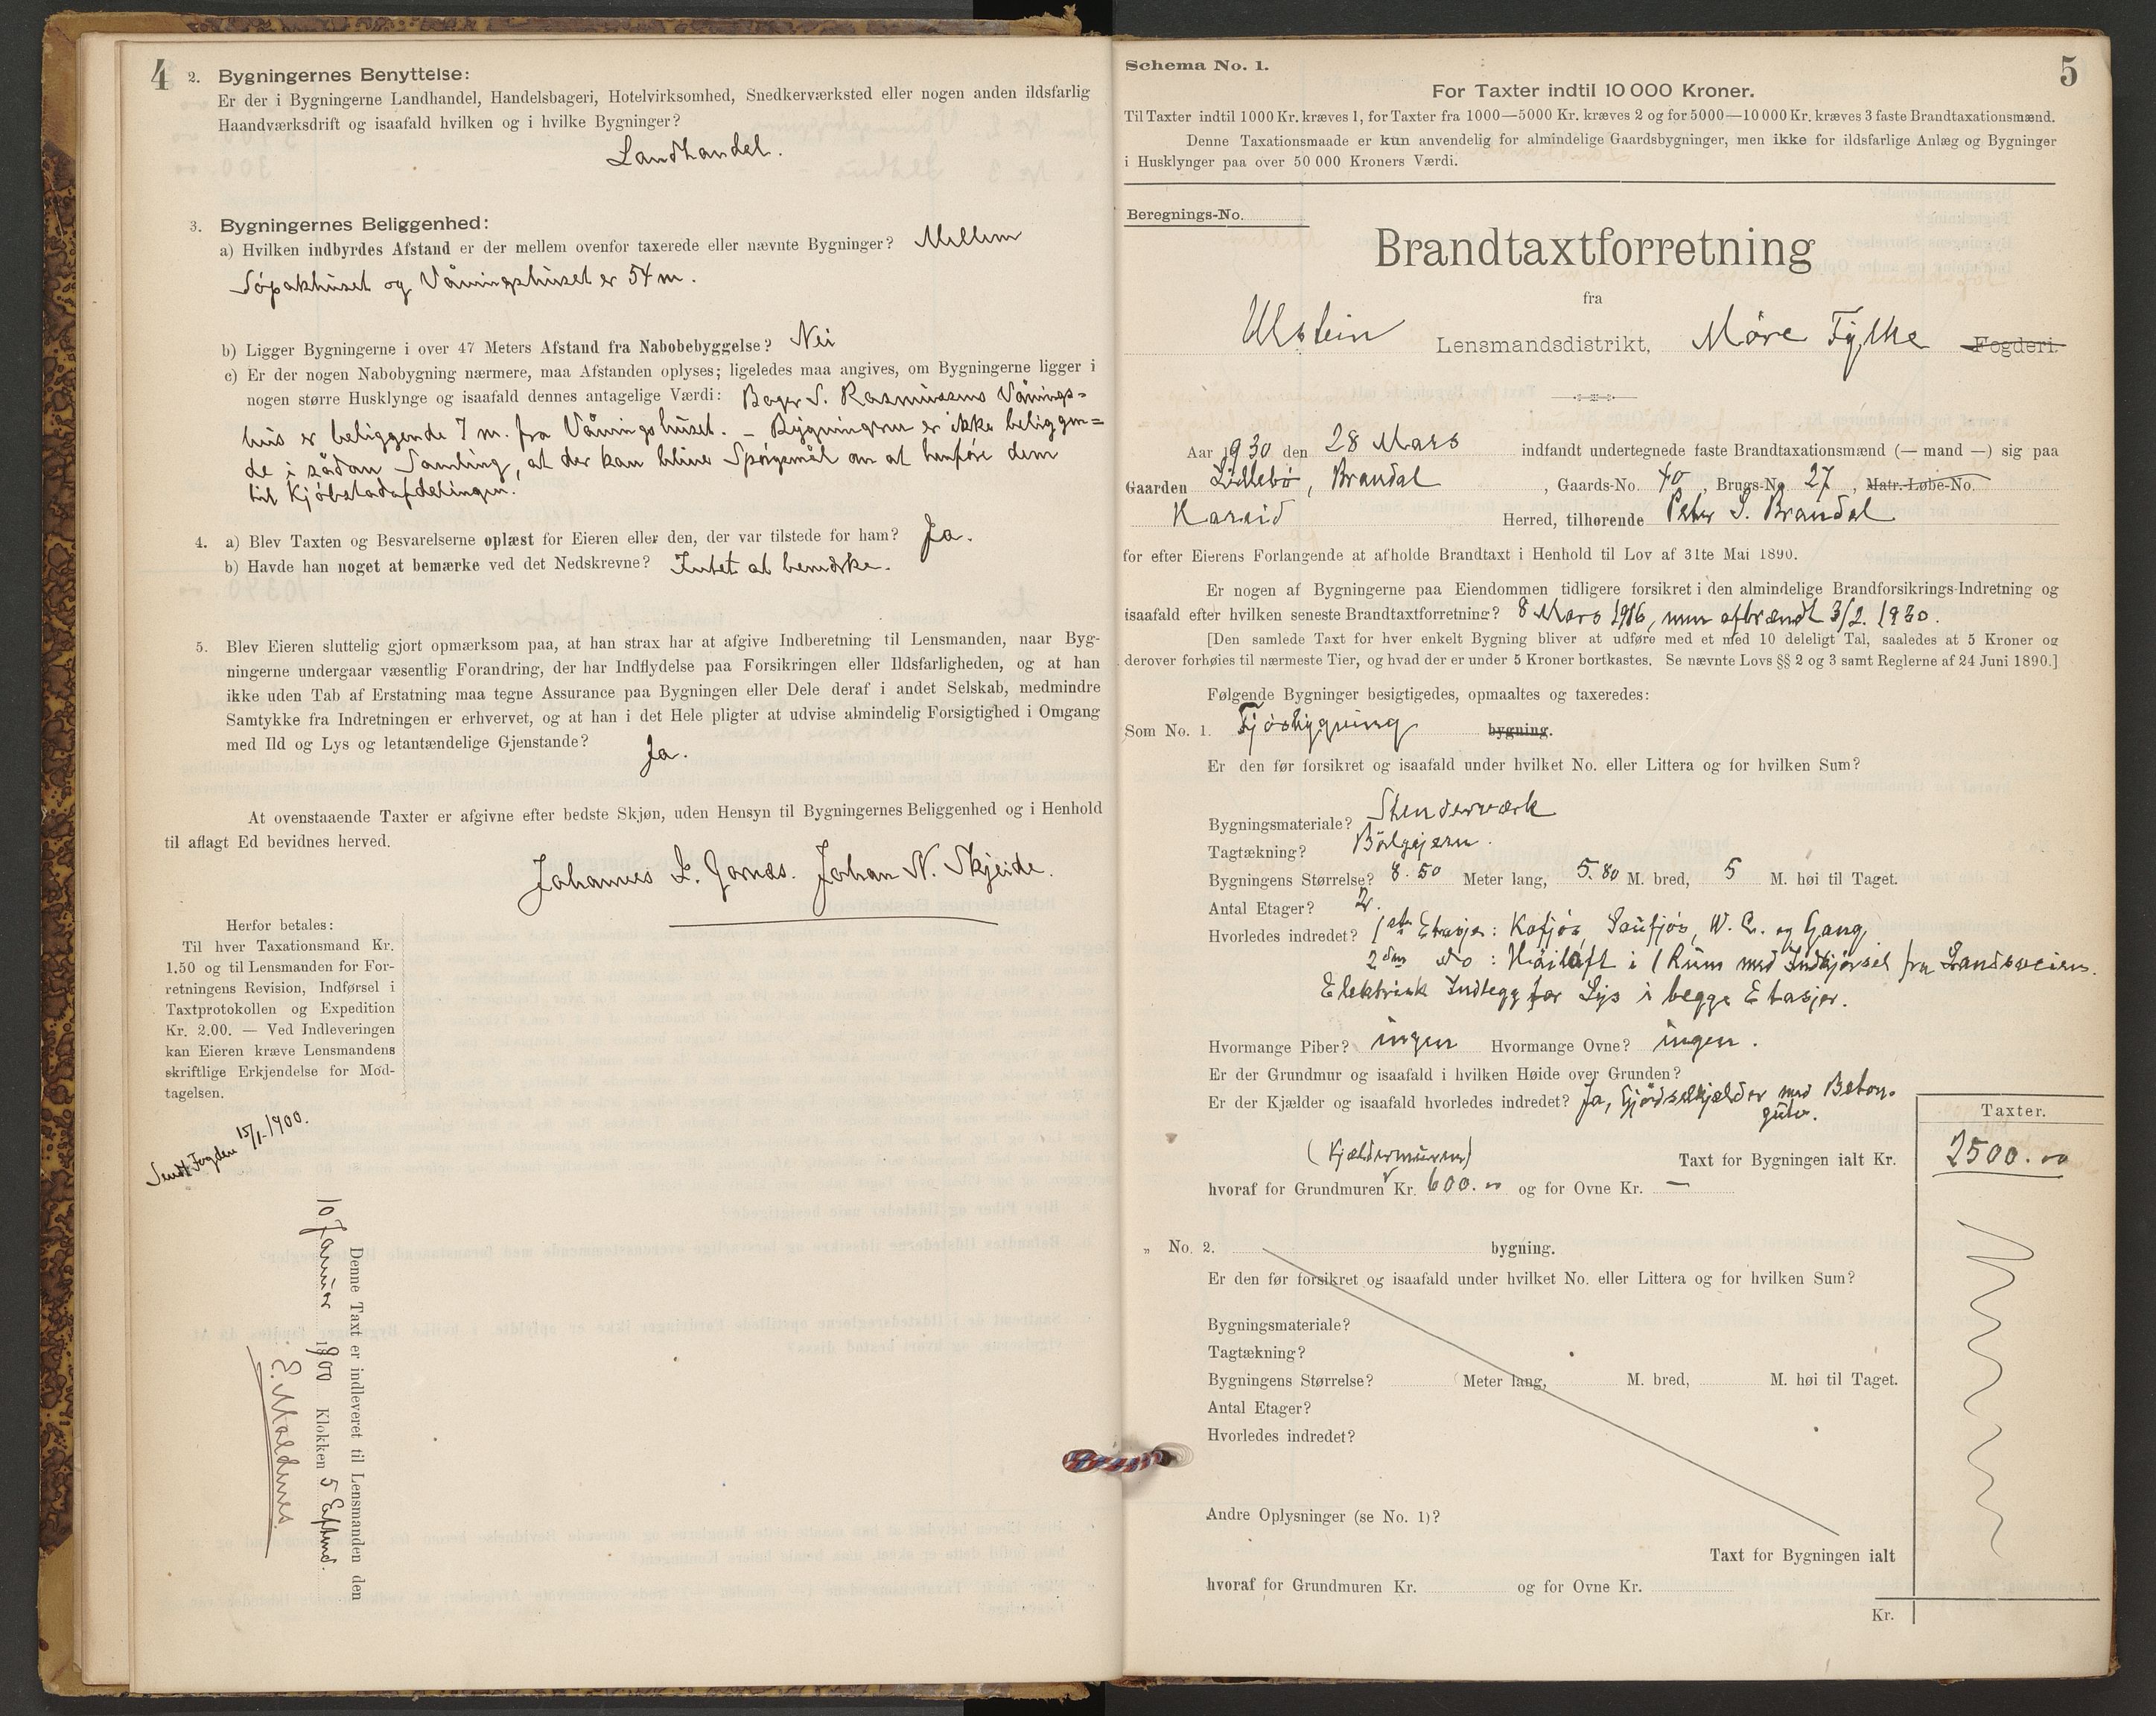 4
2. Bygningernes Benyttelse:
Er der i Bygningerne Landhandel, Handelsbageri, Hotelvirksomhed, Snedkerværksted eller nogen anden ildsfarlig
Haandværksdrift og isaafald hvilken og i hvilke Bygninger?
Landhandel.
3. Bygningernes Beliggenhed:
a) Hvilken indbyrdes Afstand er der mellem ovenfor taxerede eller nævnte Bygninger? Mellem
Söpakhuset og Våningshuset er 54 m.
b) Ligger Bygningerne i over 47 Meters Afstand fra Nabobebyggelse? Nei
c) Er der nogen Nabobygning nærmere, maa Afstanden oplyses; ligeledes maa angives, om Bygningerne ligger i
nogen større Husklynge og isaafald dennes antagelige Værdi: Bager S. Rasmussens Vånings=
hus er beliggende 7 m. fra Våningshuset. – Bygningerne er ikke beliggen=
de i sådan Samling, at der kan blive Spörgsmål om at henföre dem
til Kjöbstadafdelingen.
4. a) Blev Taxten og Besvarelserne oplæst for Eieren eller den, der var tilstede for ham? Ja.
b) Havde han noget at bemærke ved det Nedskrevne? Intet at bemærke.
5. Blev Eieren sluttelig gjort opmærksom paa, at han strax har at afgive Indberetning til Lensmanden, naar Byg-
ningerne undergaar væsentlig Forandring, der har Indflydelse paa Forsikringen eller Ildsfarligheden, og at han
ikke uden Tab af Erstatning maa tegne Assurance paa Bygningen eller Dele deraf i andet Selskab, medmindre
Samtykke fra Indretningen er erhvervet, og at han i det Hele pligter at udvise almindelig Forsigtighed i Omgang
med Ild og Lys og letantændelige Gjenstande? Ja.
At ovenstaaende Taxter er afgivne efter bedste Skjøn, uden Hensyn til Bygningernes Beliggenhed og i Henhold
til aflagt Ed bevidnes herved.
Johannes L. Johan N. Skjeide.
Herfor betales:
Til hver Taxationsmand Kr.
1.50 og til Lensmanden for For-
retningens Revision, Indførsel i
Taxtprotokollen og Expedition
Kr. 2.00. — Ved Indleveringen
kan Eieren kræve Lensmandens
skriftlige Erkjendelse for Mod-
tagelsen.
Sendt Fogden 15/1-1900.
Denne Taxt er indleveret til Lensmanden den
10 Januar 1900 Klokken 5 Eftmd.
E. Maldenes.
5
Schema No. 1.
For Taxter indtil 10 000 Kroner.
Til Taxter indtil 1000 Kr. kræves 1, for Taxter fra 1000—5000 Kr. kræves 2 og for 5000—10 000 Kr. kræves 3 faste Brandtaxationsmænd.
Denne Taxationsmaade er kun anvendelig for almindelige Gaardsbygninger, men ikke for ildsfarlige Anlæg og Bygninger
i Husklynger paa over 50 000 Kroners Værdi.
Beregnings-No.
Brandtaxtforretning
fra
Ulstein Lensmandsdistrikt, Möre Fylke Fogderi.
Aar 1930 den 28 Mars indfandt undertegnede faste Brandtaxationsmænd (— mand —) sig paa
Gaarden Lillebö, Brandal, Gaards-No. 40, Brugs-No. 27, Matr.-Løbe-No.
Hareid Herred, tilhørende Peter S. Brandal
for efter Eierens Forlangende at afholde Brandtaxt i Henhold til Lov af 31te Mai 1890.
Er nogen af Bygningerne paa Eiendommen tidligere forsikret i den almindelige Brandforsikrings-Indretning og
isaafald efter hvilken seneste Brandtaxtforretning? 8 Mars 1916, men afbrændt 3/2. 1930.
[Den samlede Taxt for hver enkelt Bygning bliver at udføre med et med 10 deleligt Tal, saaledes at 5 Kroner og
derover forhøies til nærmeste Tier, og hvad der er under 5 Kroner bortkastes. Se nævnte Lovs §§ 2 og 3 samt Reglerne af 24 Juni 1890.]
Følgende Bygninger besigtigedes, opmaaltes og taxeredes:
Som No. 1. Fjösbygning bygning.
Er den før forsikret og isaafald under hvilket No. eller Littera og for hvilken Sum?
Bygningsmateriale? Stenderværk
Tagtækning? Bölgejern.
Bygningens Størrelse? 8.50 Meter lang, 5.80 M. bred, 5 M. høi til Taget.
Antal Etager? 2.
Hvorledes indredet? 1ste Etasje: Kofjös, Saufjös, W. C. og Gang.
2den do : Höiloft i 1 Rum med Indkjörsel fra Landsveien.
Elektrisk Indlegg for Lys i begge Etasjer.
Hvormange Piber? ingen Hvormange Ovne? ingen.
Er der Grundmur og isaafald i hvilken Høide over Grunden?
Er der Kjælder og isaafald hvorledes indredet? Ja, Gjödselkjælder med Beton-
gulv.
Taxter.
(Kjældermuren)
Taxt for Bygningen ialt Kr. 2500.00
hvoraf for Grundmuren Kr. 600.00 og for Ovne Kr. —
„ No. 2. bygning.
Er den før forsikret og isaafald under hvilket No. eller Littera og for hvilken Sum?
Bygningsmateriale?
Tagtækning?
Bygningens Størrelse? Meter lang, M. bred, M. høi til Taget.
Antal Etager?
Hvorledes indredet?
Andre Oplysninger (se No. 1)?
Taxt for Bygningen ialt
hvoraf for Grundmuren Kr. og for Ovne Kr.
Kr.